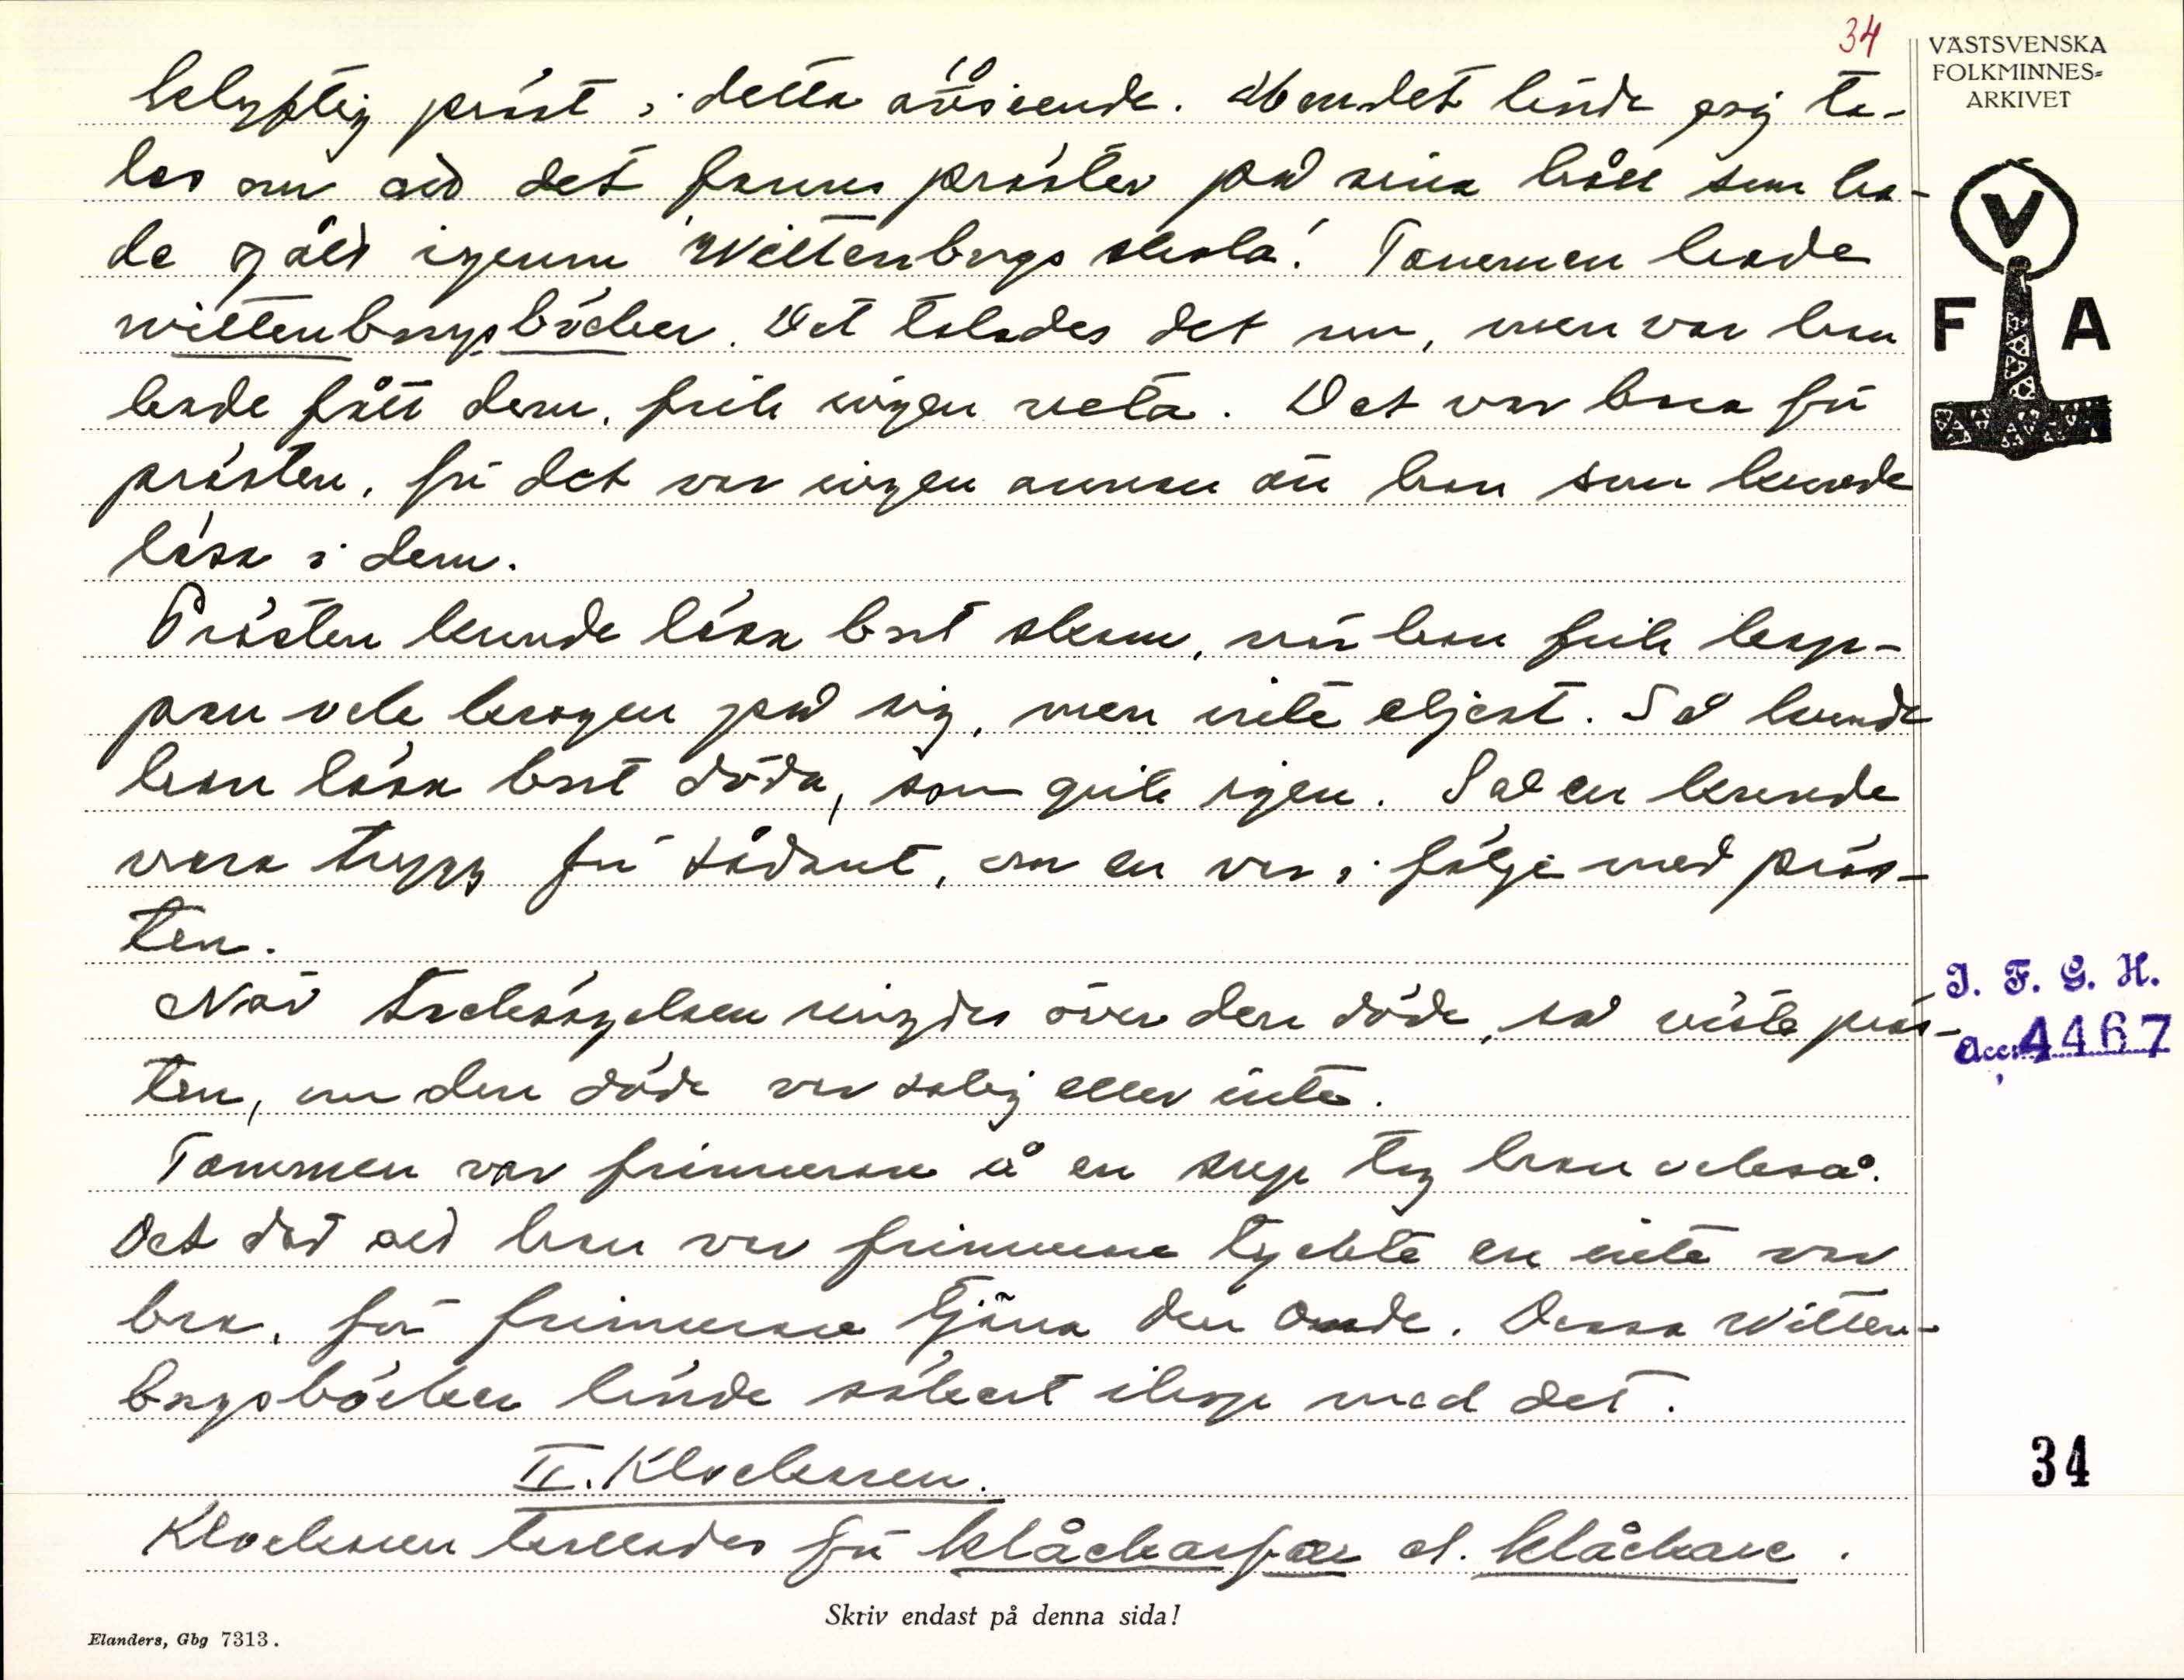 34
VÄSTSVENSKA
FOLKMINNES-
ARKIVET
klyftig präst i detta avseende. Annars det hände sig ta-
las om att det fanns präster på sina håll som ha-
de gått igenom "Wittenbergs skola". Tammen hade
wittenbergsböcker. Det talades det om, men var han
hade fått dem, fick ingen veta. Det var bara för
prästen, för det var ingen annan än han som kunde
läsa i dem.
Prästen kunde läsa bort skam, när han fick kap-
pan ock kragen på sig, men inte eljest. Så kunde
han läsa bort döda, som gick igen. Så en kunde
vara trygg för sådant, om en var i följe med präs-
ten.
När tacksägelsen ringdes över den döde, så visste präs-
ten, om den döde var salig eller inte.
Tammen var frimurare å en sup tog han också.
Det där att han var frimurare tyckte en inte var
bra, för frimurare tjäna den Onde. Dessa Witten-
bergsböcker hörde säkert ihop med det.
II. Klockaren.
Klockaren kallades för klåckarfar el. klåckare.
V
F A
I. F. G. H.
Acc. 4467
34
Skriv endast på denna sida!
Elanders, Gbg 7313.